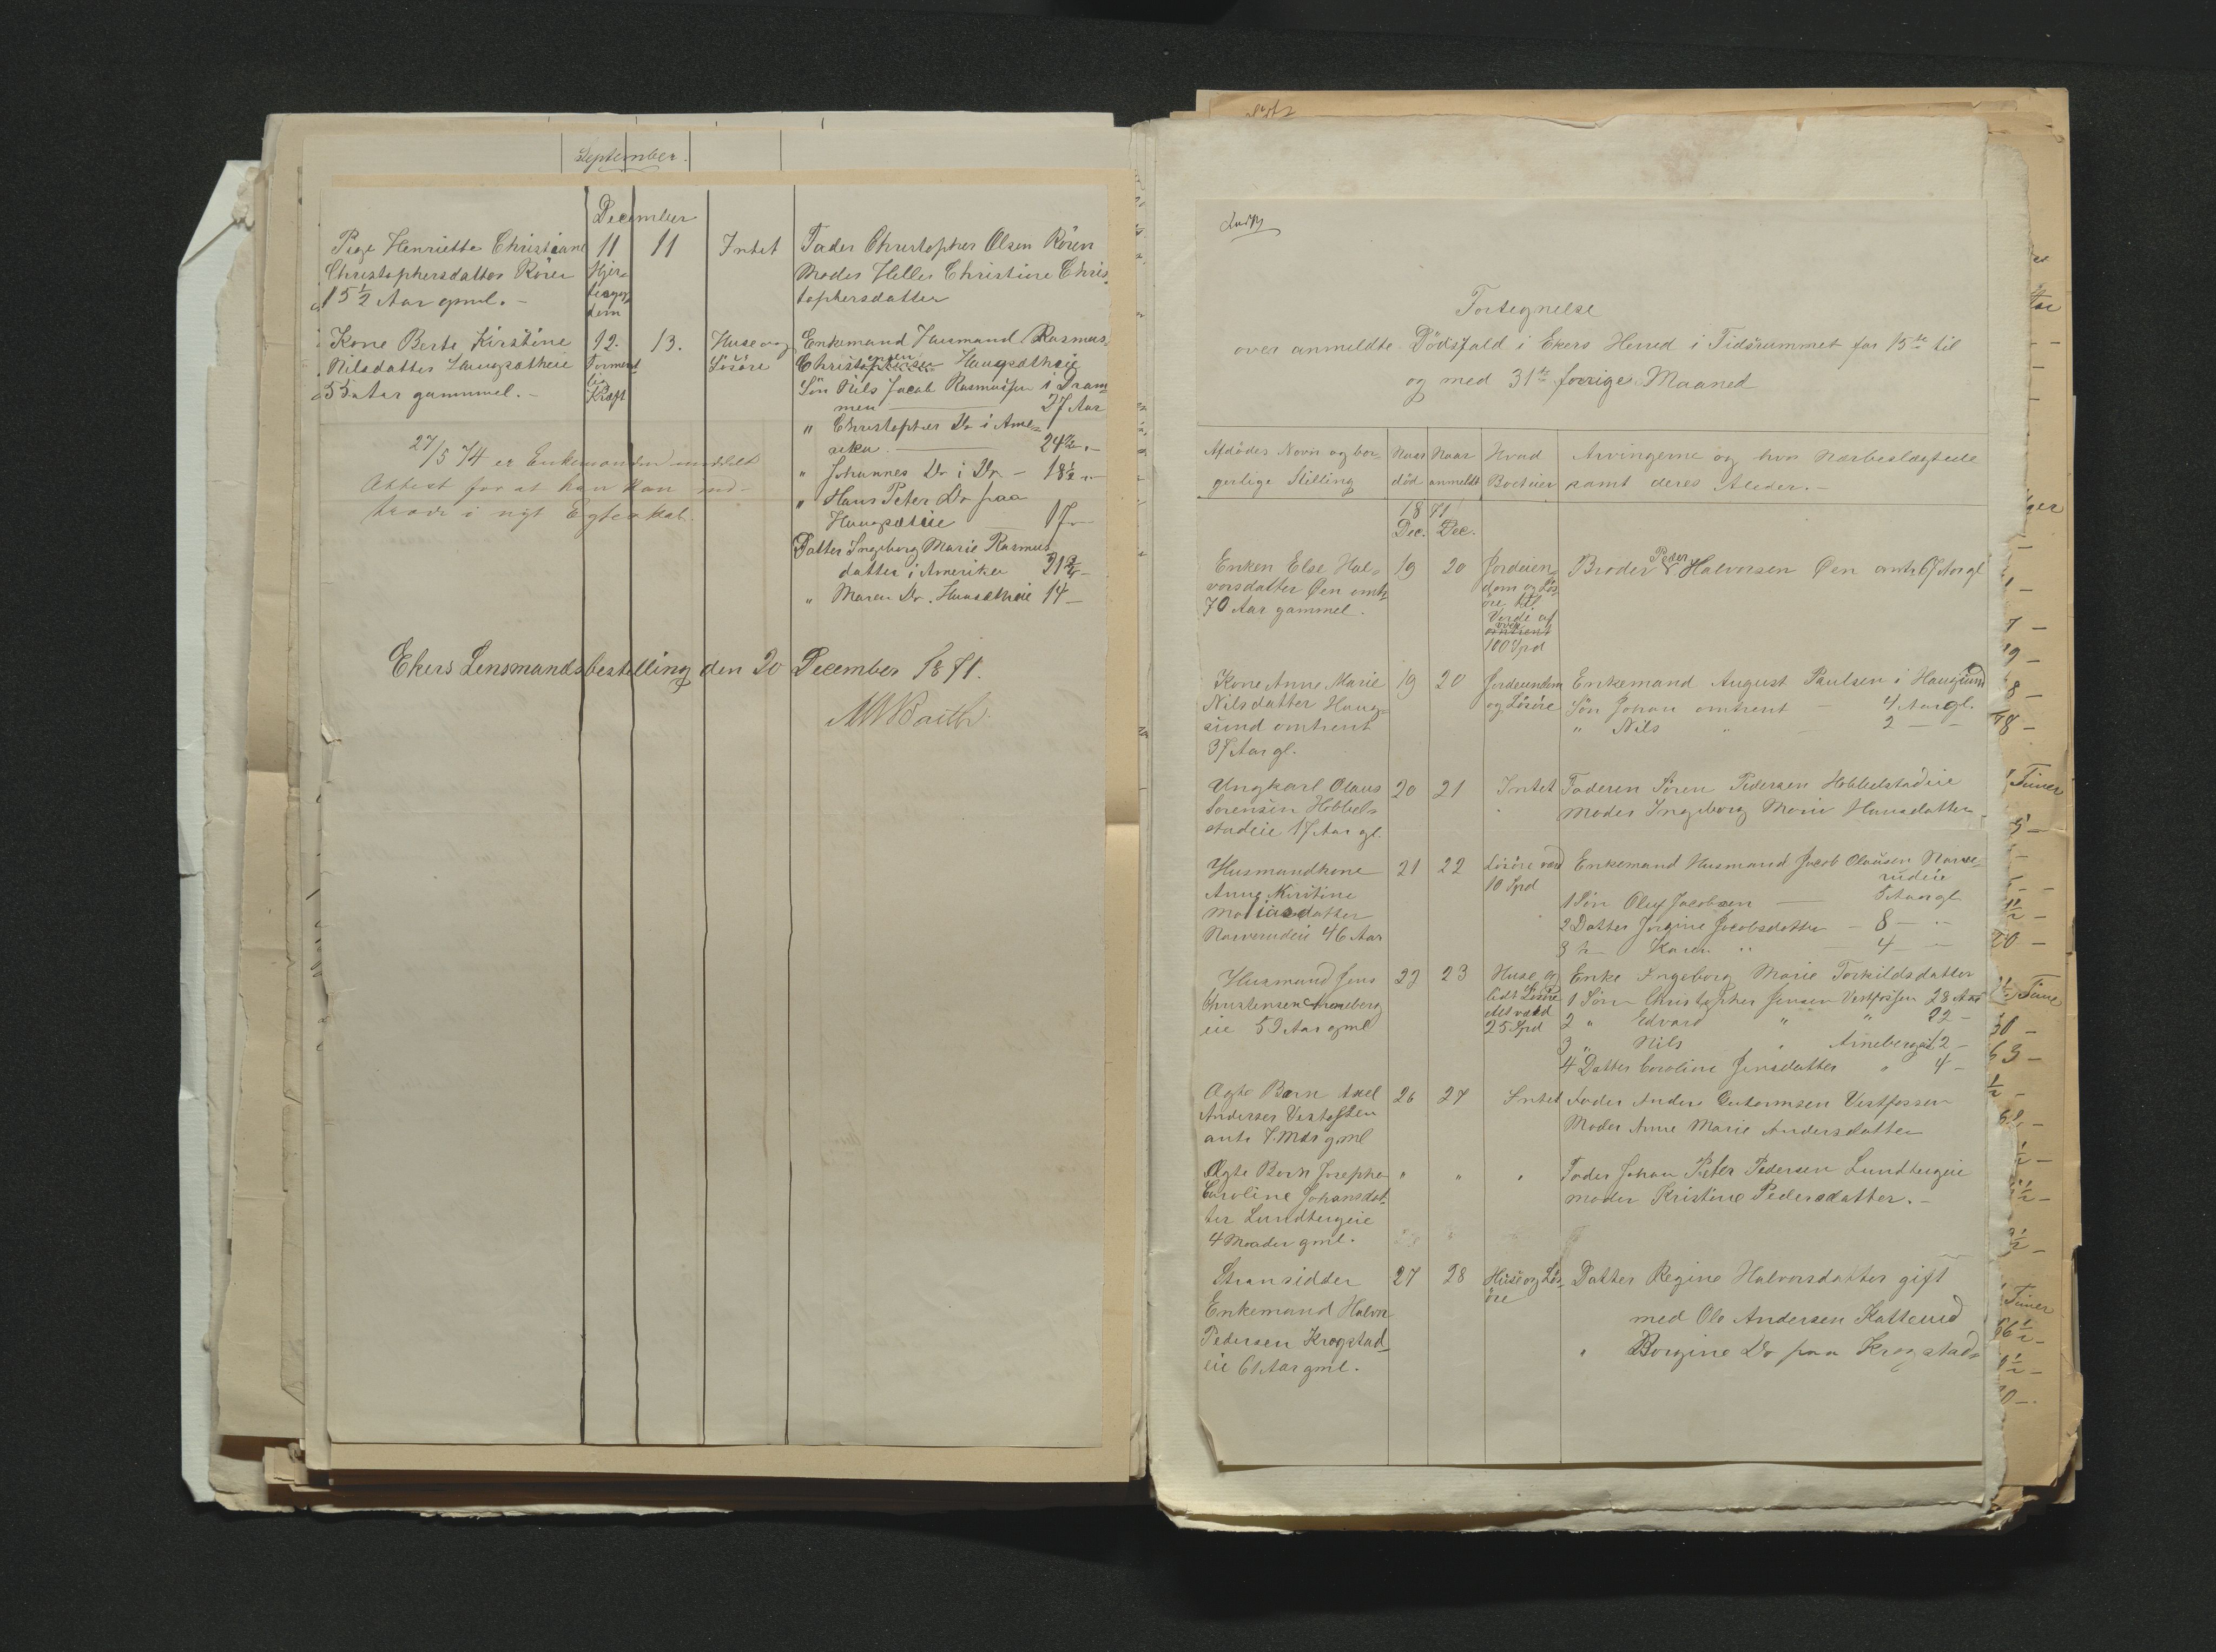 September.
December
Pige Henriette Christiane 11 11 Intet Fader Christopher Olsen Rören
Christophersdatter Rören Hjer- Moder Helle Christine Chris-
15 1/2 Aar gml. - tophersdatter
Kone Berte Kirstine 12. 13. Huse og Enkemand Huusmand Rasmus
Nilsdatter Haugsætheie Løsøre Christensen Haugsætheie
55 Aar gammel. - Sön Nils Jacob Rasmussen i Dram-
men 27 Aar
" Christopher Do i Ame-
rika 24
27/5 74 er Enkemanden meddelt " Johannes Do i Do - 18 1/2
Attest for at han kan ind- " Hans Peter Do paa
træde i nyt Egteskab. Haugsætheie 17 -
Datter Ingeborg Marie Rasmus-
datter i Amerika 21
" Maren Do. 14 -
Ekers Lensmandsbestilling den 20 December 1871.
Fortegnelse
over anmeldte Dödsfald i Ekers Herred i Tidsrummet fra 15de til
og med 31te forrige Maaned
Afdødes Navn og bor- Naar Naar Hvad Arvingerne og hvor nærbeslægtede
gerlige Stilling død anmeldt Boet eier samt deres Alder. -
1871
Dec. Dec.
Enken Else Hal- 19 20 Jordeien- Broder Peder Halvorsen Øen omtr. 67 Aar gl
vorsdatter Øen omtr. dom og Løs-
70 Aar gammel. öre til
Verdi af
over
omtrent
100 Spd
Kone Anne Marie 19 20 Jordeiendom Enkemand August Paulsen i Haugsund
Nilsdatter Haug- og Lösöre Sön Johan omtrent - 4 Aar gl.
sund omtrent " Nils " 2 -
37 Aar gl.
Ungkarl Olaus 20 21 Intet Faderen Sören Pedersen Hobbelstadeie
Sorensen Hobbel- Moder Ingeborg Marie Hansdatter
stadeie 17 Aar gl.
Husmandkone 21 22 Lösöre værd Enkemand Husmand Jacob Olausen Narve-
Anne Kirstine 10 Spd rudeie
Mathiasdatter 1 Sön Oluf Jacobsen - 5 Aar gl
Narverudeie 46 Aar 2 Datter Jörgine Jacobsdatter - 8 -
3 Karen " 4 -
Husmand Jens 22 23 Huse og Enke Ingeborg Marie Torkildsdatter
Christensen Arneberg lidt Lösöre 1 Sön Christopher Jensen Vestfossen 28 Aar
eie 59 Aar gml Alt værd 2 " Edvard " " 22 -
25 Spd 3 " Nils " Arnebergeie 12 -
4 Datter Caroline Jensdatter " 4 -
Ægte Barn Axel 26 27 Intet Fader Anders Guttormsen Vestfossen
Andersen Vestfossen Moder Anne Marie Andersdatter
7 Mdr gml
Ægte Barn Josephe " " " Fader Johan Peter Pedersen Lundbergeie
Caroline Johansdat- Moder Kristine Pedersdatter. -
ter Lundbergeie
4 Maader gml.
Strandsidder 27 28 Huse og Løs- Datter Regine Halvorsdatter gift
Enkemand Halvor öre med Ole Andersen Katterud
Pedersen Krogstad- " Borgine Do paa Krogstad-
eie 61 Aar gml.